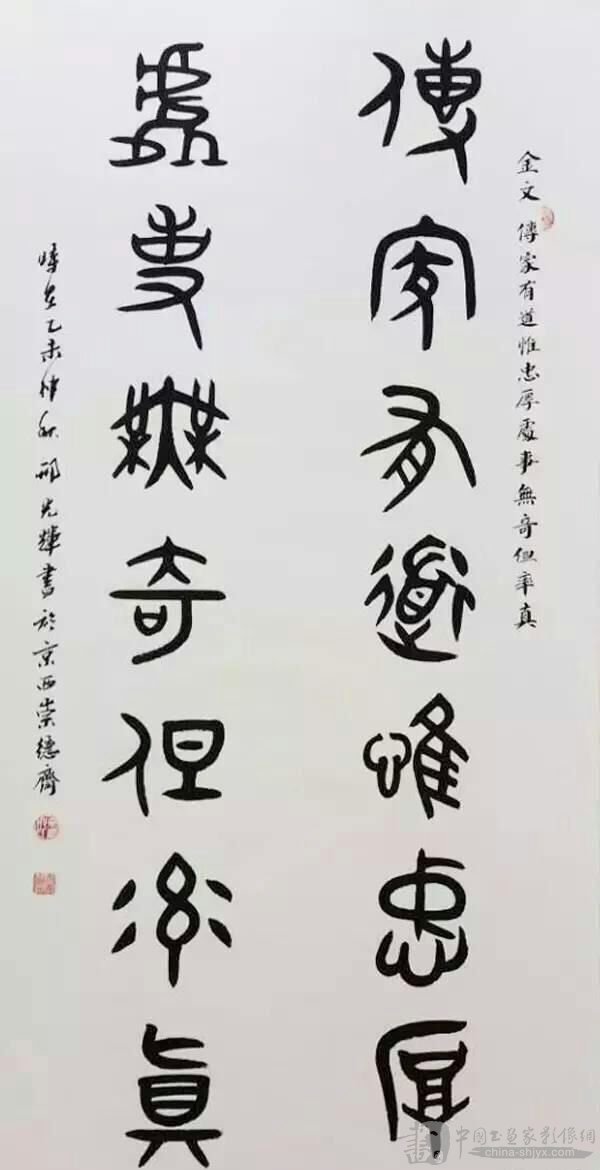 金文 傳家有道惟忠厚處事無奇但率真
傳家有道惟忠厚
處事無奇但率真
時在乙未仲秋邢光輝書於京西崇德齋
中国书画家影像網
china-shjyx.com